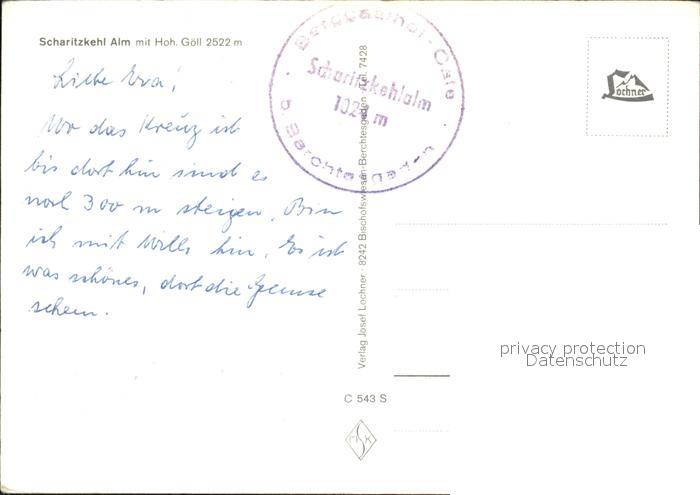 Scharitzkehl Alm mit Hoh. Göll 2522 m
Liebe Eva!
Wo das Kreuz ist
bis dort hin sind es
noch 300 m steigen. Bin
ich mit Willi hin. Es ist
was schönes, dort die Gemse
sehen.
Berggasthof - Cafe
Scharitzkehlalm
102 m
b. Berchtesgaden
Verlag Josef Lochner · 8242 Bischofswiesen-Berchtesgaden · Tel. 7428
Lochner
privacy protection
Datenschutz
C 543 S